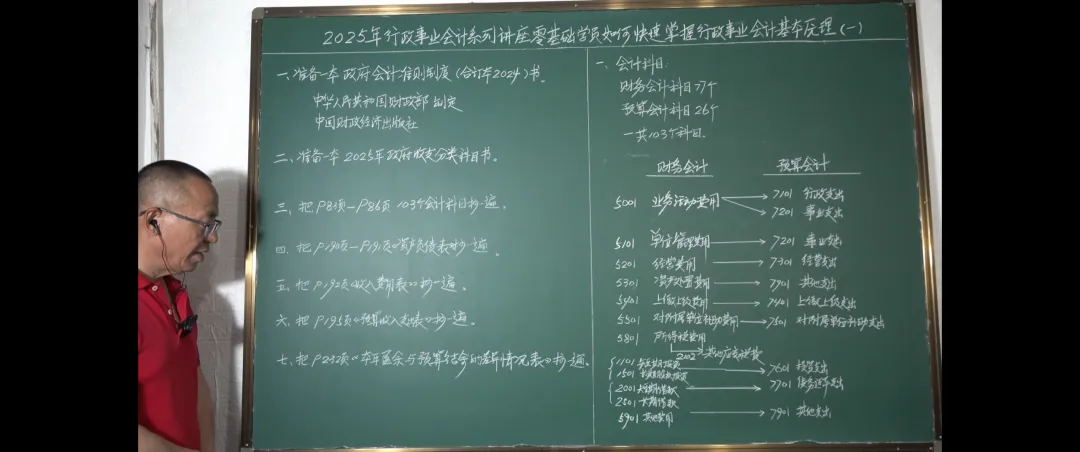 2025年行政事业会计系列讲座零基础学员如何快速掌握行政事业会计基本原理(一)
一、准备一本政府会计准则制度(合订本2024)书。
中华人民共和国财政部 制定
中国财政经济出版社
二、准备一本2025年政府收支分类科目书。
三、把P83页—P86页103个会计科目抄一遍。
四、把P190页—P191页《资产负债表》抄一遍。
五、把P192页《收入费用表》抄一遍。
六、把P195页《预算收入支出表》抄一遍。
七、把P232页《本年盈余与预算结余的差异情况表》抄一遍。
一、会计科目:
财务会计科目77个
预算会计科目26个
一共103个科目.
财务会计 预算会计
5001 业务活动费用 7101 行政支出
7201 事业支出
5101 单位管理费用 7201 事业支出
5201 经营费用 7301 经营支出
5301 资产处置费用 7901 其他支出
5401 上缴上级费用 7401 上缴上级支出
5501 对附属单位补助费用 7501 对附属单位补助支出
5801 所得税费用
2102 其他应交税费
1101 短期投资 7601 投资支出
1501 长期股权投资
2001 短期借款 7701 债务还本支出
2501 长期借款
5901 其他费用 7901 其他支出